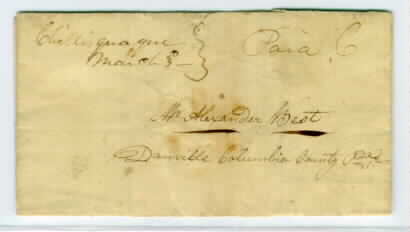 Chillisquaque
March 8
Paid 6
Mr Alexander Best
Danville Columbia County Pa